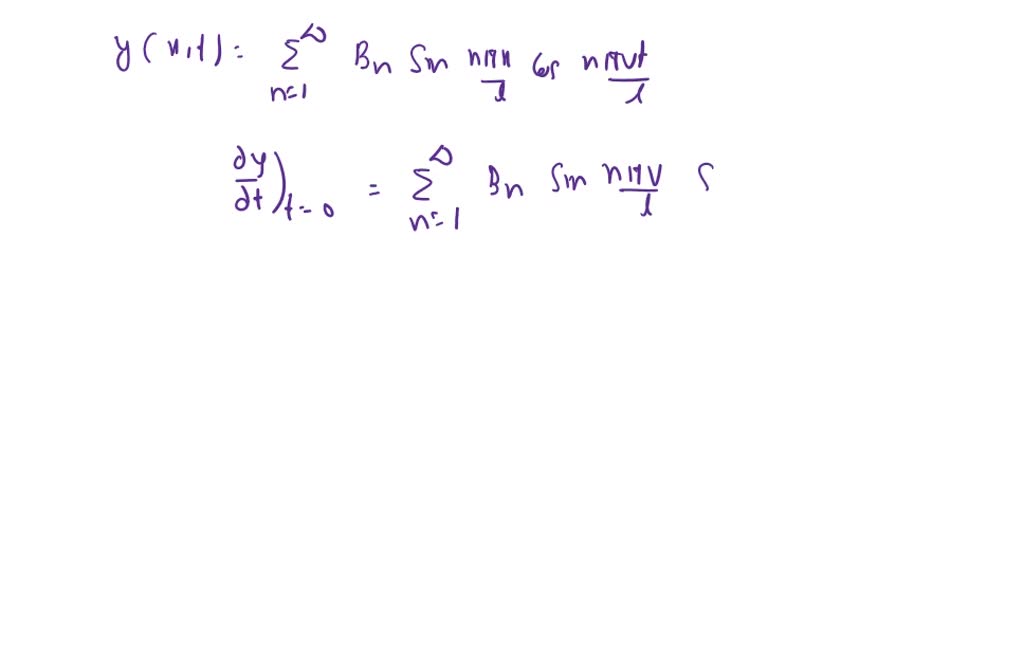 y(x,t) = ∑_{n=1}^{∞} B_n Sin \frac{nπx}{l} Cos \frac{nπvt}{l}
\frac{∂y}{∂t})_{t=0} = ∑_{n=1}^{∞} B_n Sin \frac{nπv}{l} S